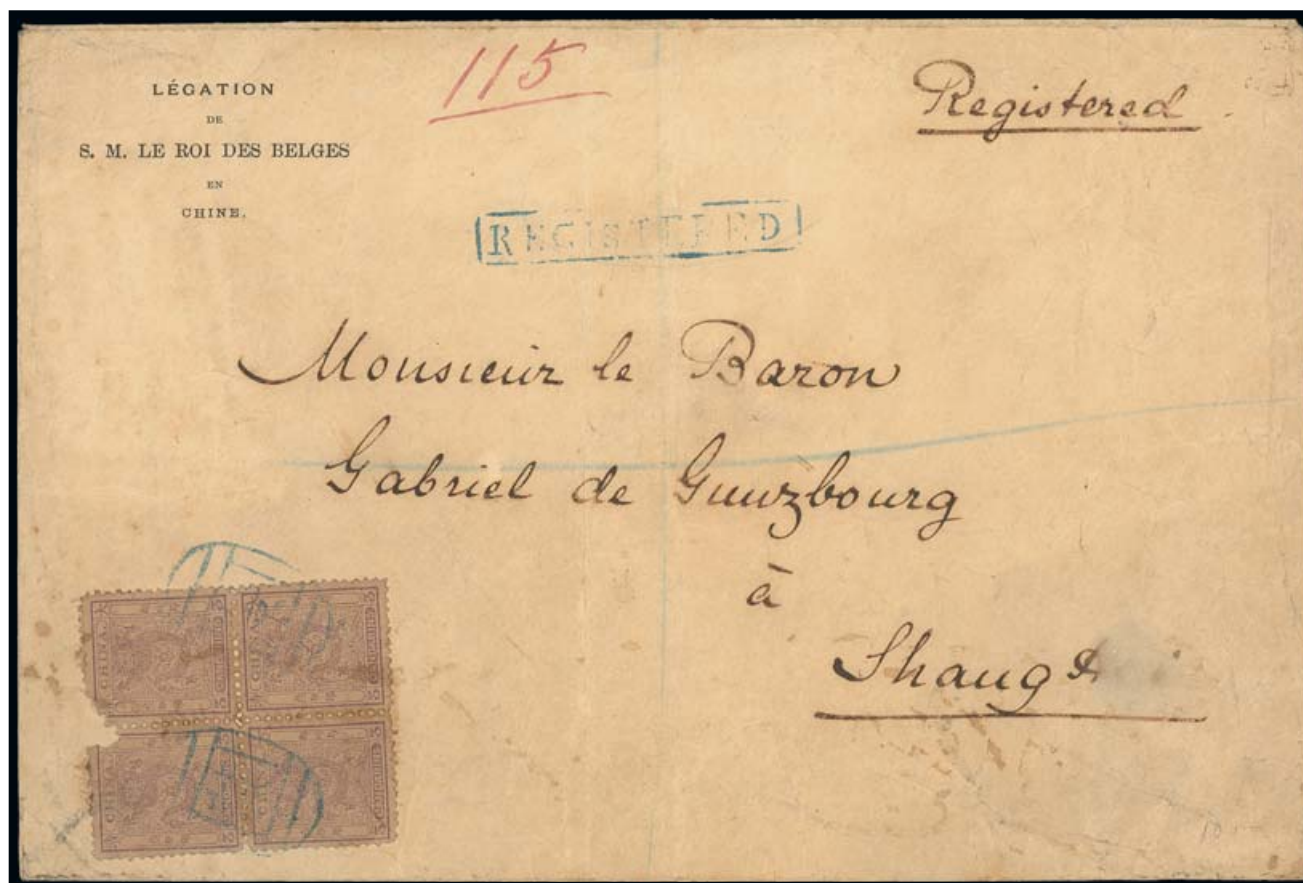 LÉGATION
DE
S. M. LE ROI DES BELGES
EN
CHINE.
115
Registered
REGISTERED
Monsieur le Baron
Gabriel de Gunzbourg
à
Shang
CHINA
CHINA
CHINA